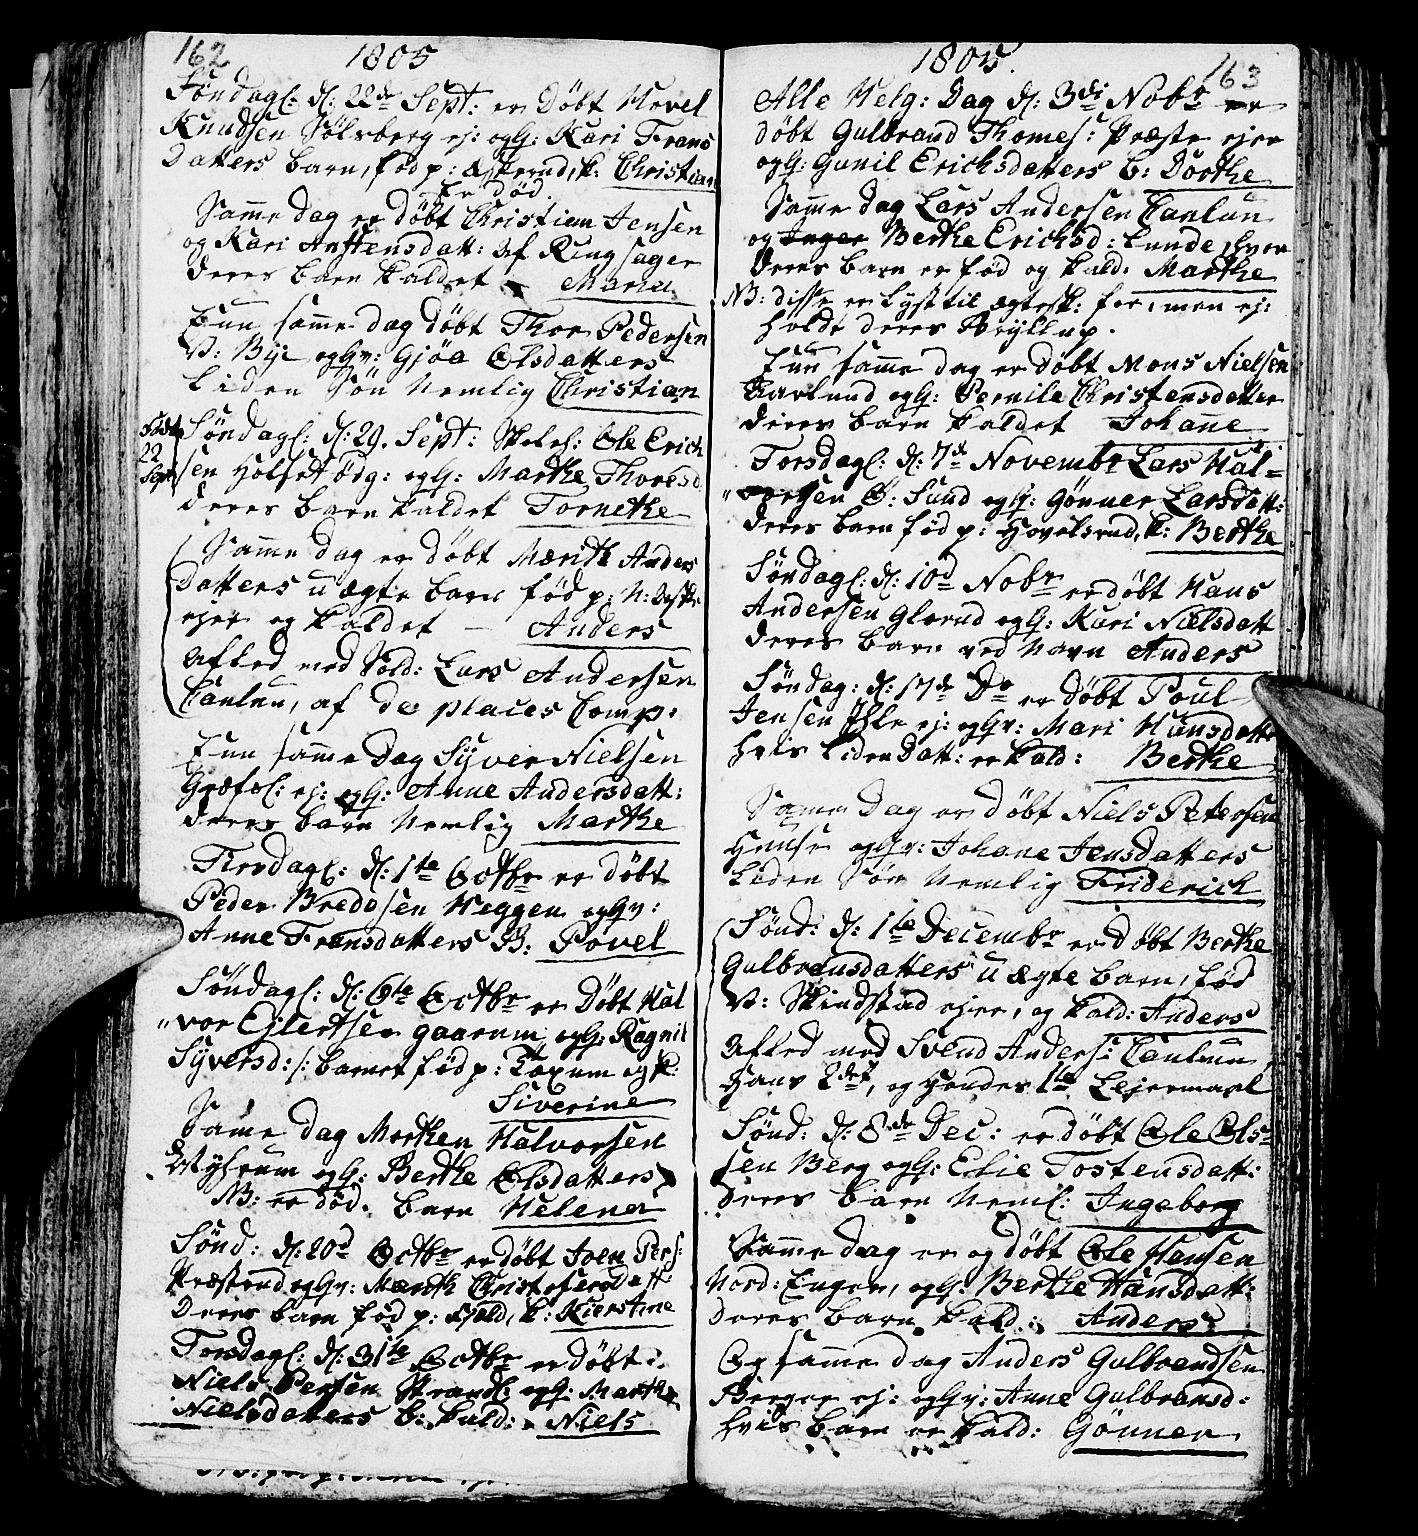 162
1805
Søndagl: d: 22de Sept: er Døbt Hovel
Knudsen Sølvberg ej: ogh: Kari Frans
Datters barn, fød p: Askerud, k: Christian
er død.
Samme dag er døbt Christian Jensen
og Kari Anstensdatt: af Ringsager
deres barn kaldet Maria
Euu samme dag døbt Thor Pedersen
V: Bye oghv: Gjøa Olsdatters
liden Søn Nemlig Christian
Født
22
Sept
Søndagl: d: 29. Sept: Skoleh: Ole Erich
sen Holset Odg: ogh: Marthe Thoresd
deres barn kaldet Tornethe
Samme dag er døbt Marith Anders
Datters uægte barn fød p: N:
ejer og kaldet - Anders
Afled med Sold: Lars Andersen
Tanlun, af de places Comp:
Euu samme Dag Syver Nielsen
Græfsl: ej: ogh: Anne Andersdatt:
deres barn Nemlig Marthe
Tirsdagl: d: 1te Octbr er døbt
Peder Bredesen Heggen oghv:
Anne Fransdatters B: Povel
Søndagl: d: 6te Octbr er Døbt Hal
" vor Ejlertsen gaarum ogh: Ragnil
Syversd: /: barnet fød p: Toxum og k:
Siverine
Same dag Morthen Halvorsen
Myhrum ogh: Berthe Olsdatters
NB: er død. barn Helena
Sønd: d: 20d Octbr er døbt Iven Pers:
Præsterud oghv: Marith Christofersdatt
Deres barn fød p: Fjeld, k: Kierstine
Torsdagl: d: 31te Octbr er døbt
Niels Persen Strandl: ogh: Marthe
Nielsdatters b: kald: Niels
1805.
163
Alle Helg: Dag d: 3di Nobr er
døbt Gulbrand Thomes: Præste ejer
ogh: Gunil Erichsdatters b: Dorthe
Samme dag Lars Andersen Tanlun
og Inger Berthe Ericksd: Lunde, hvor
deres barn er fød og kald: Marthe
NB: disse er lyst til ægtesk: før, men ej:
holdt deres Bryllup.
Euu samme dag er døbt Mons Nielsen
Haarlund ogh: Pernile Christensdatter
deres barn kaldet Johane
Torsdagl: d: 7de Novembr Lars Hal=
" vorsen B: Sund ogh: Gønner Larsdatt:
deres barn fød p: Hovelsrud, k: Berthe
Søndagl: d: 10d Nobr er døbt Hans
Andersen Glorud ogh: Kari Nielsdatt
deres barn ved Navn Anders
Søndag: d: 17de Do er døbt Poul
Jensen Ihle ej: oghv: Mari Hansdatt
hvis liden Datt: er kald: Berthe
Same Dag er døbt Niels Petersen
Hemse oghv: Johane Jensdatters
liden Søn Nemlig Friderich
Sønd: d: 1te Decembr er døbt Berthe
Gulbransdatters uægte barn, fød
V: Skindstad ejer, og kald: Anders
Afled med Svend Anders: Tanlun
Hans 2det, og Hendes 1te Lejermaal
Sønd: d: 8de Dec: er døbt Ole Ols=
sen Berg ogh: Elie Tostensdatt:
deres barn Neml: Ingeborg
Samme dag er og døbt Ole Hansen
Nord: Enger, ogh: Berthe Hansdatt:
deres barn kald: Anders
Og samme dag Anders Gulbrandsen
Berger ej: oghv: Anne Gulbransd:
hvis barn er kald: Gønner